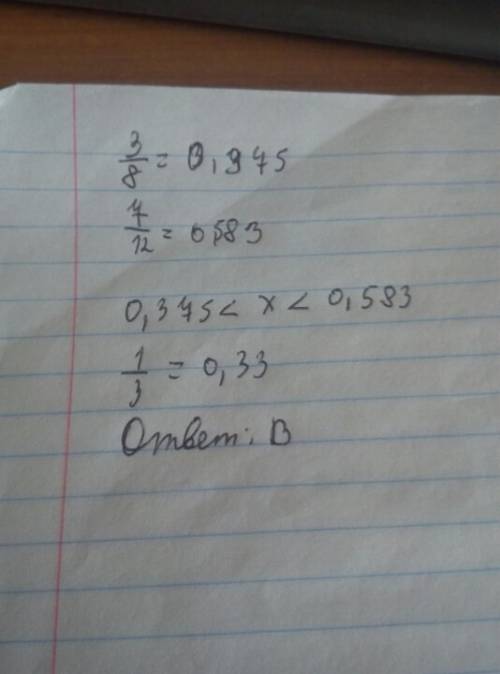 3/8 = 0,375
7/12 = 0,583
0,375 < x < 0,583
1/3 = 0,33
Ответ: В